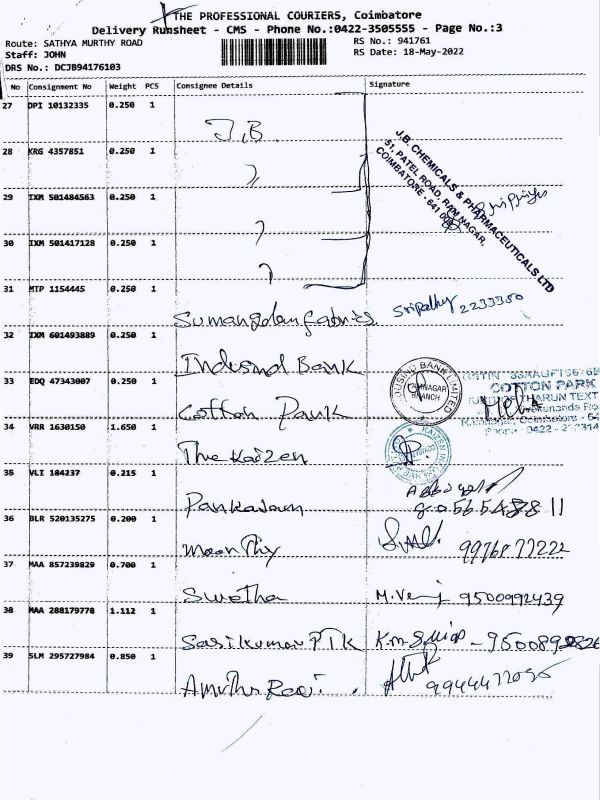 THE PROFESSIONAL COURIERS, Coimbatore
Delivery Runsheet - CMS - Phone No.:0422-3505555 - Page No.:3
Route: SATHYA MURTHY ROAD
RS No.: 941761
Staff: JOHN
RS Date: 18-May-2022
DRS No.: DCJB94176103
No Consignment No Weight PCS Consignee Details Signature
27 DPI 10132335 0.250 1
J.B.
28 KRG 4357851 0.250 1
J.B. CHEMICALS & PHARMACEUTICALS LTD
51, PATEL ROAD, RAM NAGAR,
COIMBATORE - 641 009
29 IXM 501484563 0.250 1
30 IXM 501417128 0.250 1
31 MTP 1154445 0.250 1
Sumangalam fabrics Sripathy 2233350
32 IXM 601493889 0.250 1
Indusind Bank
INDUSIND BANK LIMITED
RAMNAGAR
BRANCH
33 EDQ 47343007 0.250 1
Cotton Park
COTTON PARK
UNIT OF THARUN TEXT
34 VRR 1630150 1.650 1
The Kaizen
KAIZEN
35 VLI 184237 0.215 1
Pankajam
36 BLR 520135275 0.200 1
Moorthy
37 MAA 857239829 0.700 1
Swetha 9500992439
38 MAA 288179778 1.112 1
Sasikumar PTK
39 SLM 295727984 0.850 1